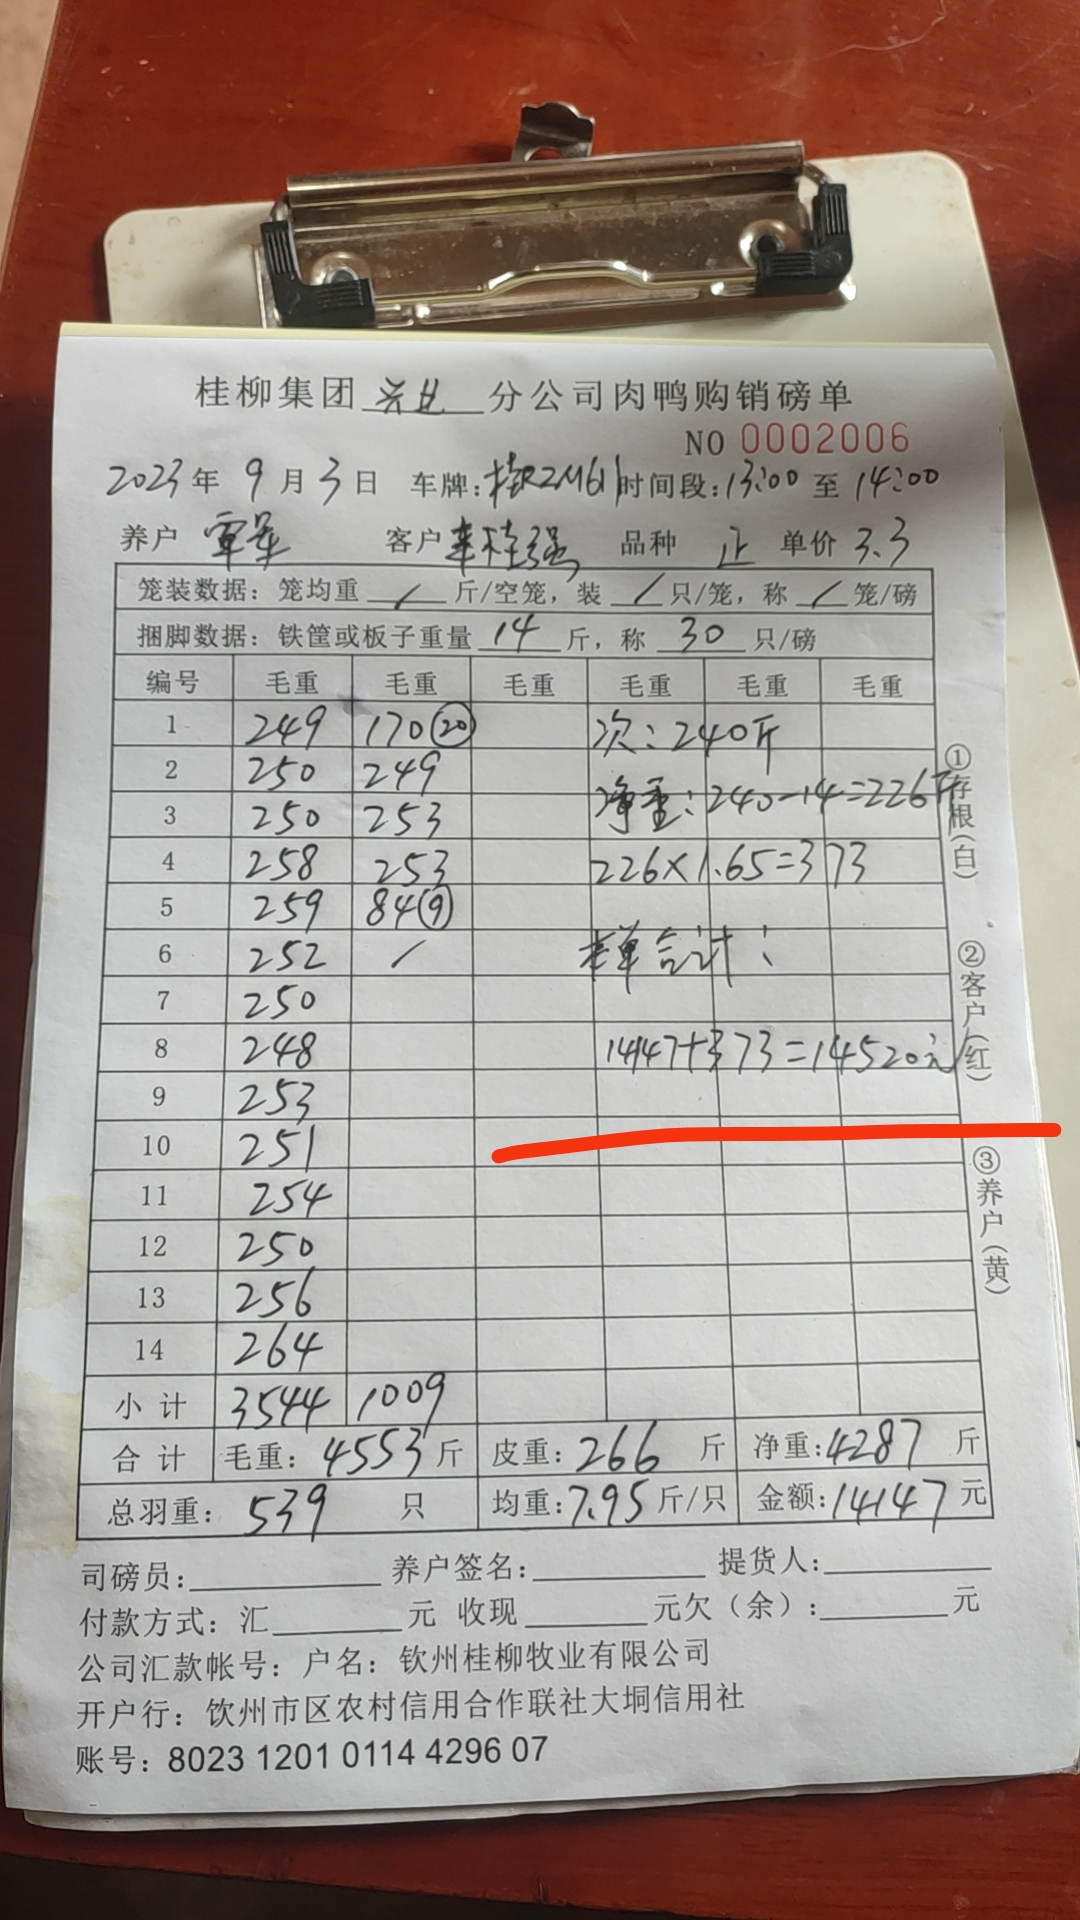 桂柳集团 兴业 分公司肉鸭购销磅单
NO 0002006
2023年 9月3日 车牌:桂R2M611 时间段:13:00 至 14:00
养户 覃 客户 桂强 品种 正 单价 3.3
笼装数据：笼均重 / 斤/空笼，装 / 只/笼，称 / 笼/磅
捆脚数据：铁筐或板子重量 14 斤，称 30 只/磅
编号 毛重 毛重 毛重 毛重 毛重 毛重
1 249 170(20) 次：240斤
2 250 249
3 250 253 净重：240-14=226斤
4 258 253 226×1.65=373
5 259 84(9)
6 252 / 本单合计：
7 250
8 248 14147+373=14520元
9 253
10 251
11 254
12 250
13 256
14 264
小计 3544 1009
合计 毛重：4553斤 皮重：266 斤 净重:4287 斤
总羽重：539 只 均重:7.95斤/只 金额:14147元
①存根(白)
②客户(红)
③养户(黄)
司磅员: 养户签名: 提货人:
付款方式：汇 元 收现 元欠（余）: 元
公司汇款帐号：户名：钦州桂柳牧业有限公司
开户行：饮州市区农村信用合作联社大垌信用社
账号：8023 1201 0114 4296 07